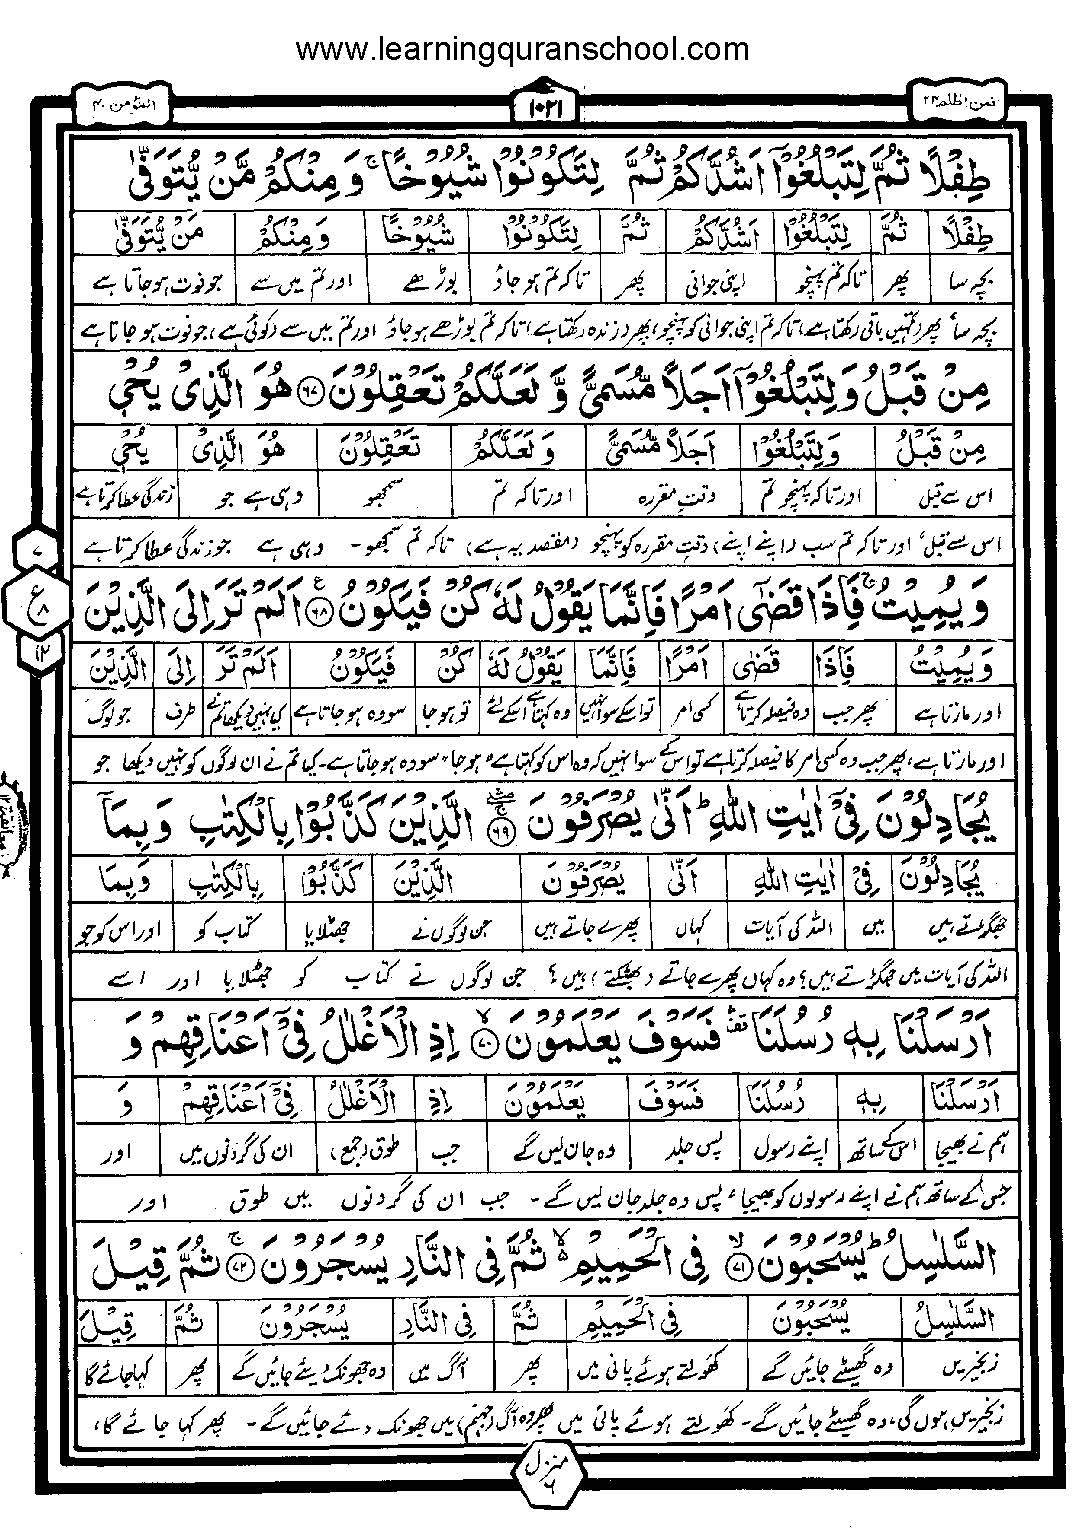 www.learningquranschool.com
فمن اظلم ۲۴ ۱۰۲۱ المؤمن ۴۰
طِفْلًا ثُمَّ لِتَبْلُغُوْٓا اَشُدَّكُمْ ثُمَّ لِتَكُوْنُوْا شُيُوْخًا ۚ وَ مِنْكُمْ مَّنْ يُّتَوَفّٰى
طِفْلًا ثُمَّ لِتَبْلُغُوْٓا اَشُدَّكُمْ ثُمَّ لِتَكُوْنُوْا شُيُوْخًا وَ مِنْكُمْ مَنْ يُّتَوَفّٰى
بچہ سا پھر تاکہ تم پہنچو اپنی جوانی پھر تاکہ تم ہو جاؤ بوڑھے اور تم میں سے جو فوت ہو جاتا ہے
بچہ سا، پھر (تمہیں باقی رکھتا ہے) تاکہ تم اپنی جوانی کو پہنچو، پھر (زندہ رکھتا ہے) تاکہ تم بوڑھے ہو جاؤ اور تم میں سے (کوئی ہے) جو فوت ہو جاتا ہے
مِنْ قَبْلُ وَ لِتَبْلُغُوْٓا اَجَلًا مُّسَمًّى وَّ لَعَلَّكُمْ تَعْقِلُوْنَ ۶۷ هُوَ الَّذِیْ يُحْیٖ
مِنْ قَبْلُ وَ لِتَبْلُغُوْٓا اَجَلًا مُّسَمًّى وَ لَعَلَّكُمْ تَعْقِلُوْنَ هُوَ الَّذِیْ يُحْیٖ
اس سے قبل اور تاکہ پہنچو تم وقتِ مقررہ اور تاکہ تم سمجھو وہی ہے جو زندگی عطا کرتا ہے
اس سے قبل، اور تاکہ تم سب (اپنے اپنے) وقتِ مقررہ کو پہنچو (مقصد یہ ہے) تاکہ تم سمجھو۔ وہی ہے جو زندگی عطا کرتا ہے
۷
ع ۸
۱۲
وَ يُمِيْتُ ۚ فَاِذَا قَضٰٓى اَمْرًا فَاِنَّمَا يَقُوْلُ لَهٗ كُنْ فَيَكُوْنُ ۶۸ اَلَمْ تَرَ اِلَى الَّذِيْنَ
وَ يُمِيْتُ فَاِذَا قَضٰٓى اَمْرًا فَاِنَّمَا يَقُوْلُ لَهٗ كُنْ فَيَكُوْنُ اَلَمْ تَرَ اِلَى الَّذِيْنَ
اور مارتا ہے پھر جب وہ فیصلہ کرتا ہے کسی امر تو اسکے سوا نہیں وہ کہتا ہے اسکے لئے تو ہو جا سو وہ ہو جاتا ہے کیا نہیں دیکھا تم نے طرف جو لوگ
اور مارتا ہے، پھر جب وہ کسی امر کا فیصلہ کرتا ہے تو اس کے سوا نہیں کہ وہ اس کو کہتا ہے "ہو جا" سو وہ ہو جاتا ہے۔ کیا تم نے ان لوگوں کو نہیں دیکھا جو
يُجَادِلُوْنَ فِیْٓ اٰيٰتِ اللّٰهِ ؕ اَنّٰى يُصْرَفُوْنَ ۶۹ الَّذِيْنَ كَذَّبُوْا بِالْكِتٰبِ وَ بِمَآ
يُجَادِلُوْنَ فِیْٓ اٰيٰتِ اللّٰهِ اَنّٰى يُصْرَفُوْنَ الَّذِيْنَ كَذَّبُوْا بِالْكِتٰبِ وَ بِمَآ
جھگڑتے ہیں میں اللہ کی آیات کہاں پھرے جاتے ہیں جن لوگوں نے جھٹلایا کتاب کو اور اس کو جو
اللہ کی آیات میں جھگڑتے ہیں؟ وہ کہاں پھرے جاتے (بھٹکتے) ہیں؟ جن لوگوں نے کتاب کو جھٹلایا اور اسے
اَرْسَلْنَا بِهٖ رُسُلَنَا فَسَوْفَ يَعْلَمُوْنَ ۷۰ اِذِ الْاَغْلٰلُ فِیْٓ اَعْنَاقِهِمْ وَ
اَرْسَلْنَا بِهٖ رُسُلَنَا فَسَوْفَ يَعْلَمُوْنَ اِذِ الْاَغْلٰلُ فِیْٓ اَعْنَاقِهِمْ وَ
ہم نے بھیجا اس کے ساتھ اپنے رسول پس جلد وہ جان لیں گے جب طوق (جمع) ان کی گردنوں میں اور
جس کے ساتھ ہم نے اپنے رسولوں کو بھیجا، پس وہ جلد جان لیں گے۔ جب ان کی گردنوں میں طوق اور
السَّلٰسِلُ ؕ يُسْحَبُوْنَ ۷۱ فِی الْحَمِيْمِ ۙ۬ ثُمَّ فِی النَّارِ يُسْجَرُوْنَ ۷۲ ثُمَّ قِيْلَ
السَّلٰسِلُ يُسْحَبُوْنَ فِی الْحَمِيْمِ ثُمَّ فِی النَّارِ يُسْجَرُوْنَ ثُمَّ قِيْلَ
زنجیریں وہ گھسیٹے جائیں گے کھولتے ہوئے پانی میں پھر آگ میں وہ جھونک دیئے جائیں گے پھر کہا جائے گا
زنجیریں ہوں گی، وہ گھسیٹے جائیں گے۔ کھولتے ہوئے پانی میں پھر وہ آگ (جہنم) میں جھونک دئے جائیں گے۔ پھر کہا جائے گا،
منزل ۶